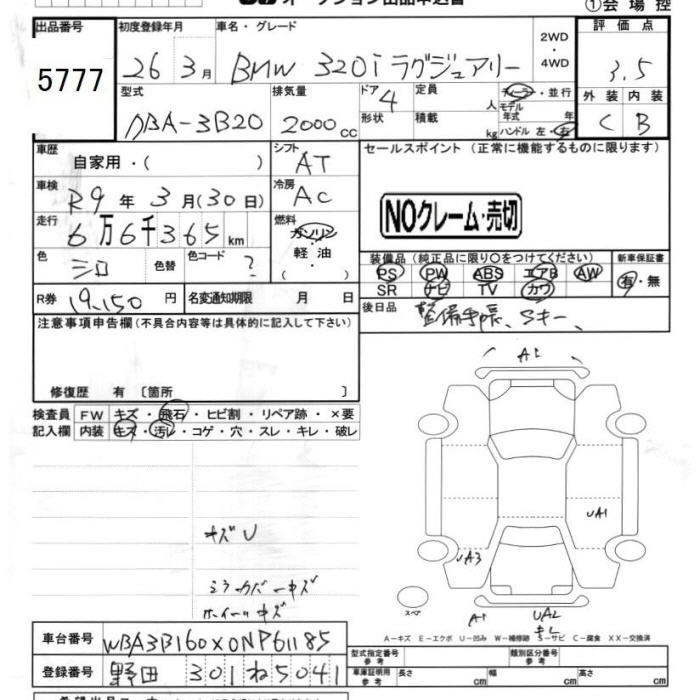 オークション出品申込書 ①会場控
出品番号 5777
初度登録年月 26 3月
車名・グレード BMW 320i ラグジュアリー
2WD・4WD
評価点 3.5
外装 C 内装 B
型式 DBA-3B20
排気量 2000cc
ドア 4 形状
定員 人
積載 kg
ディーラー・並行
モデル年式 年
ハンドル 左・右
車歴 自家用・( )
シフト AT
セールスポイント (正常に機能するものに限ります)
車検 R9年 3月(30日)
冷房 AC
NOクレーム・売切
走行 6万6千365km
燃料 ガソリン・軽油・( )
色 シロ 色替 色コード ?
装備品 (純正品に限り〇をつけてください) 新車保証書
PS PW ABS エアB AW 有・無
SR ナビ TV カワ
R券 19,150円 名変通知期限 月 日
後日品 整備手帳、Sキー、
注意事項申告欄 (不具合内容等は具体的に記入して下さい)
修復歴 有〔箇所 〕
検査員記入欄
FW キズ・飛石・ヒビ割・リペア跡・×要
内装 キズ・汚レ・コゲ・穴・スレ・キレ・破レ
A2
UA1
UA3
キズU
ミラーカバーキズ
ホイールキズ
スペア
A1 UA2
A-キズ E-エクボ U-凹み W-補修跡 S-サビ C-腐食 XX-交換済
車台番号 WBA3B160X0NP61185
登録番号 野田 301 ね 5041
型式指定番号 参考 類別区分番号 参考
車庫証明用 参考 長さ cm 幅 cm 高さ cm